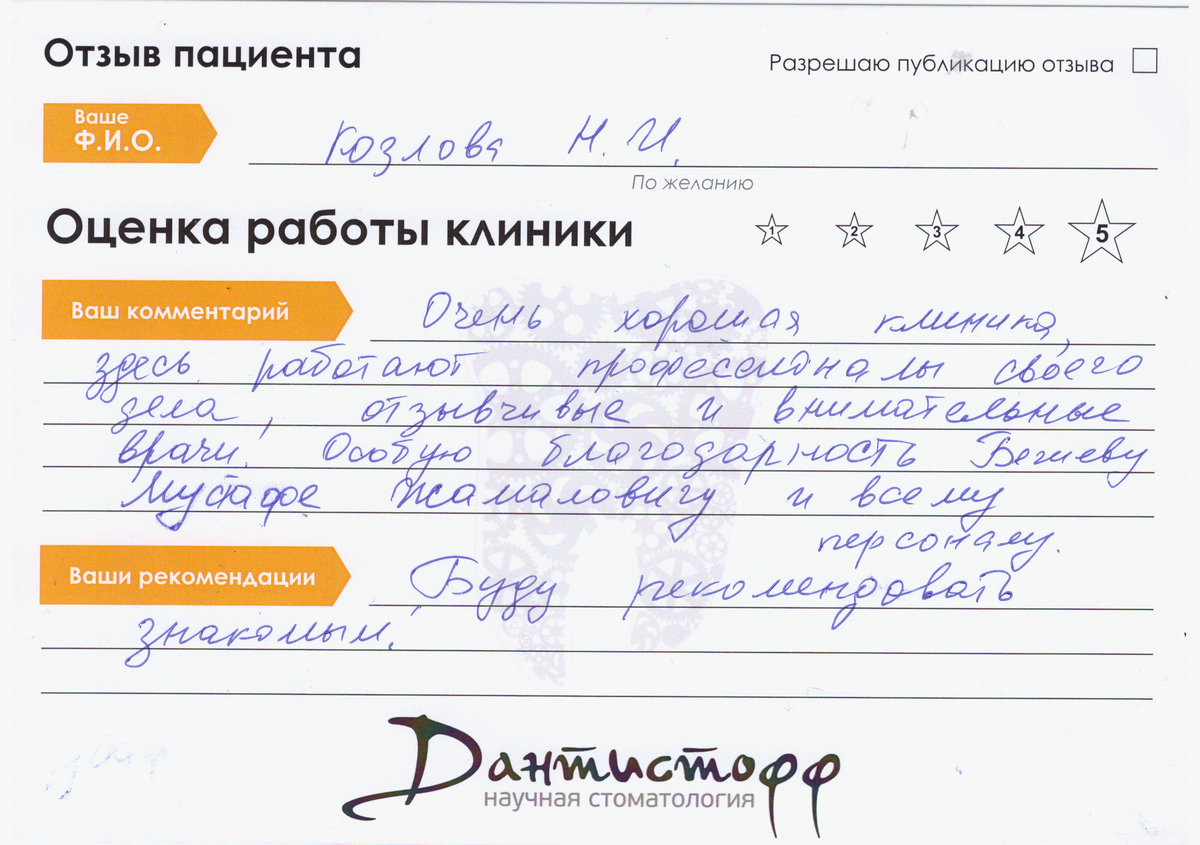 Отзыв пациента
Разрешаю публикацию отзыва
Ваше
Ф.И.О.
Козлова Н. И.
По желанию
Оценка работы клиники
1 2 3 4 5
Ваш комментарий
Очень хорошая клиника,
здесь работают професслоналы своего
дела, отзывчивые и внимательные
врачи. Особую благодарность Бегиеву
Мустафе Жамаловичу и всему
персоналу.
Ваши рекомендации
Буду рекомендовать
знакомым.
Дантистофф
научная стоматология